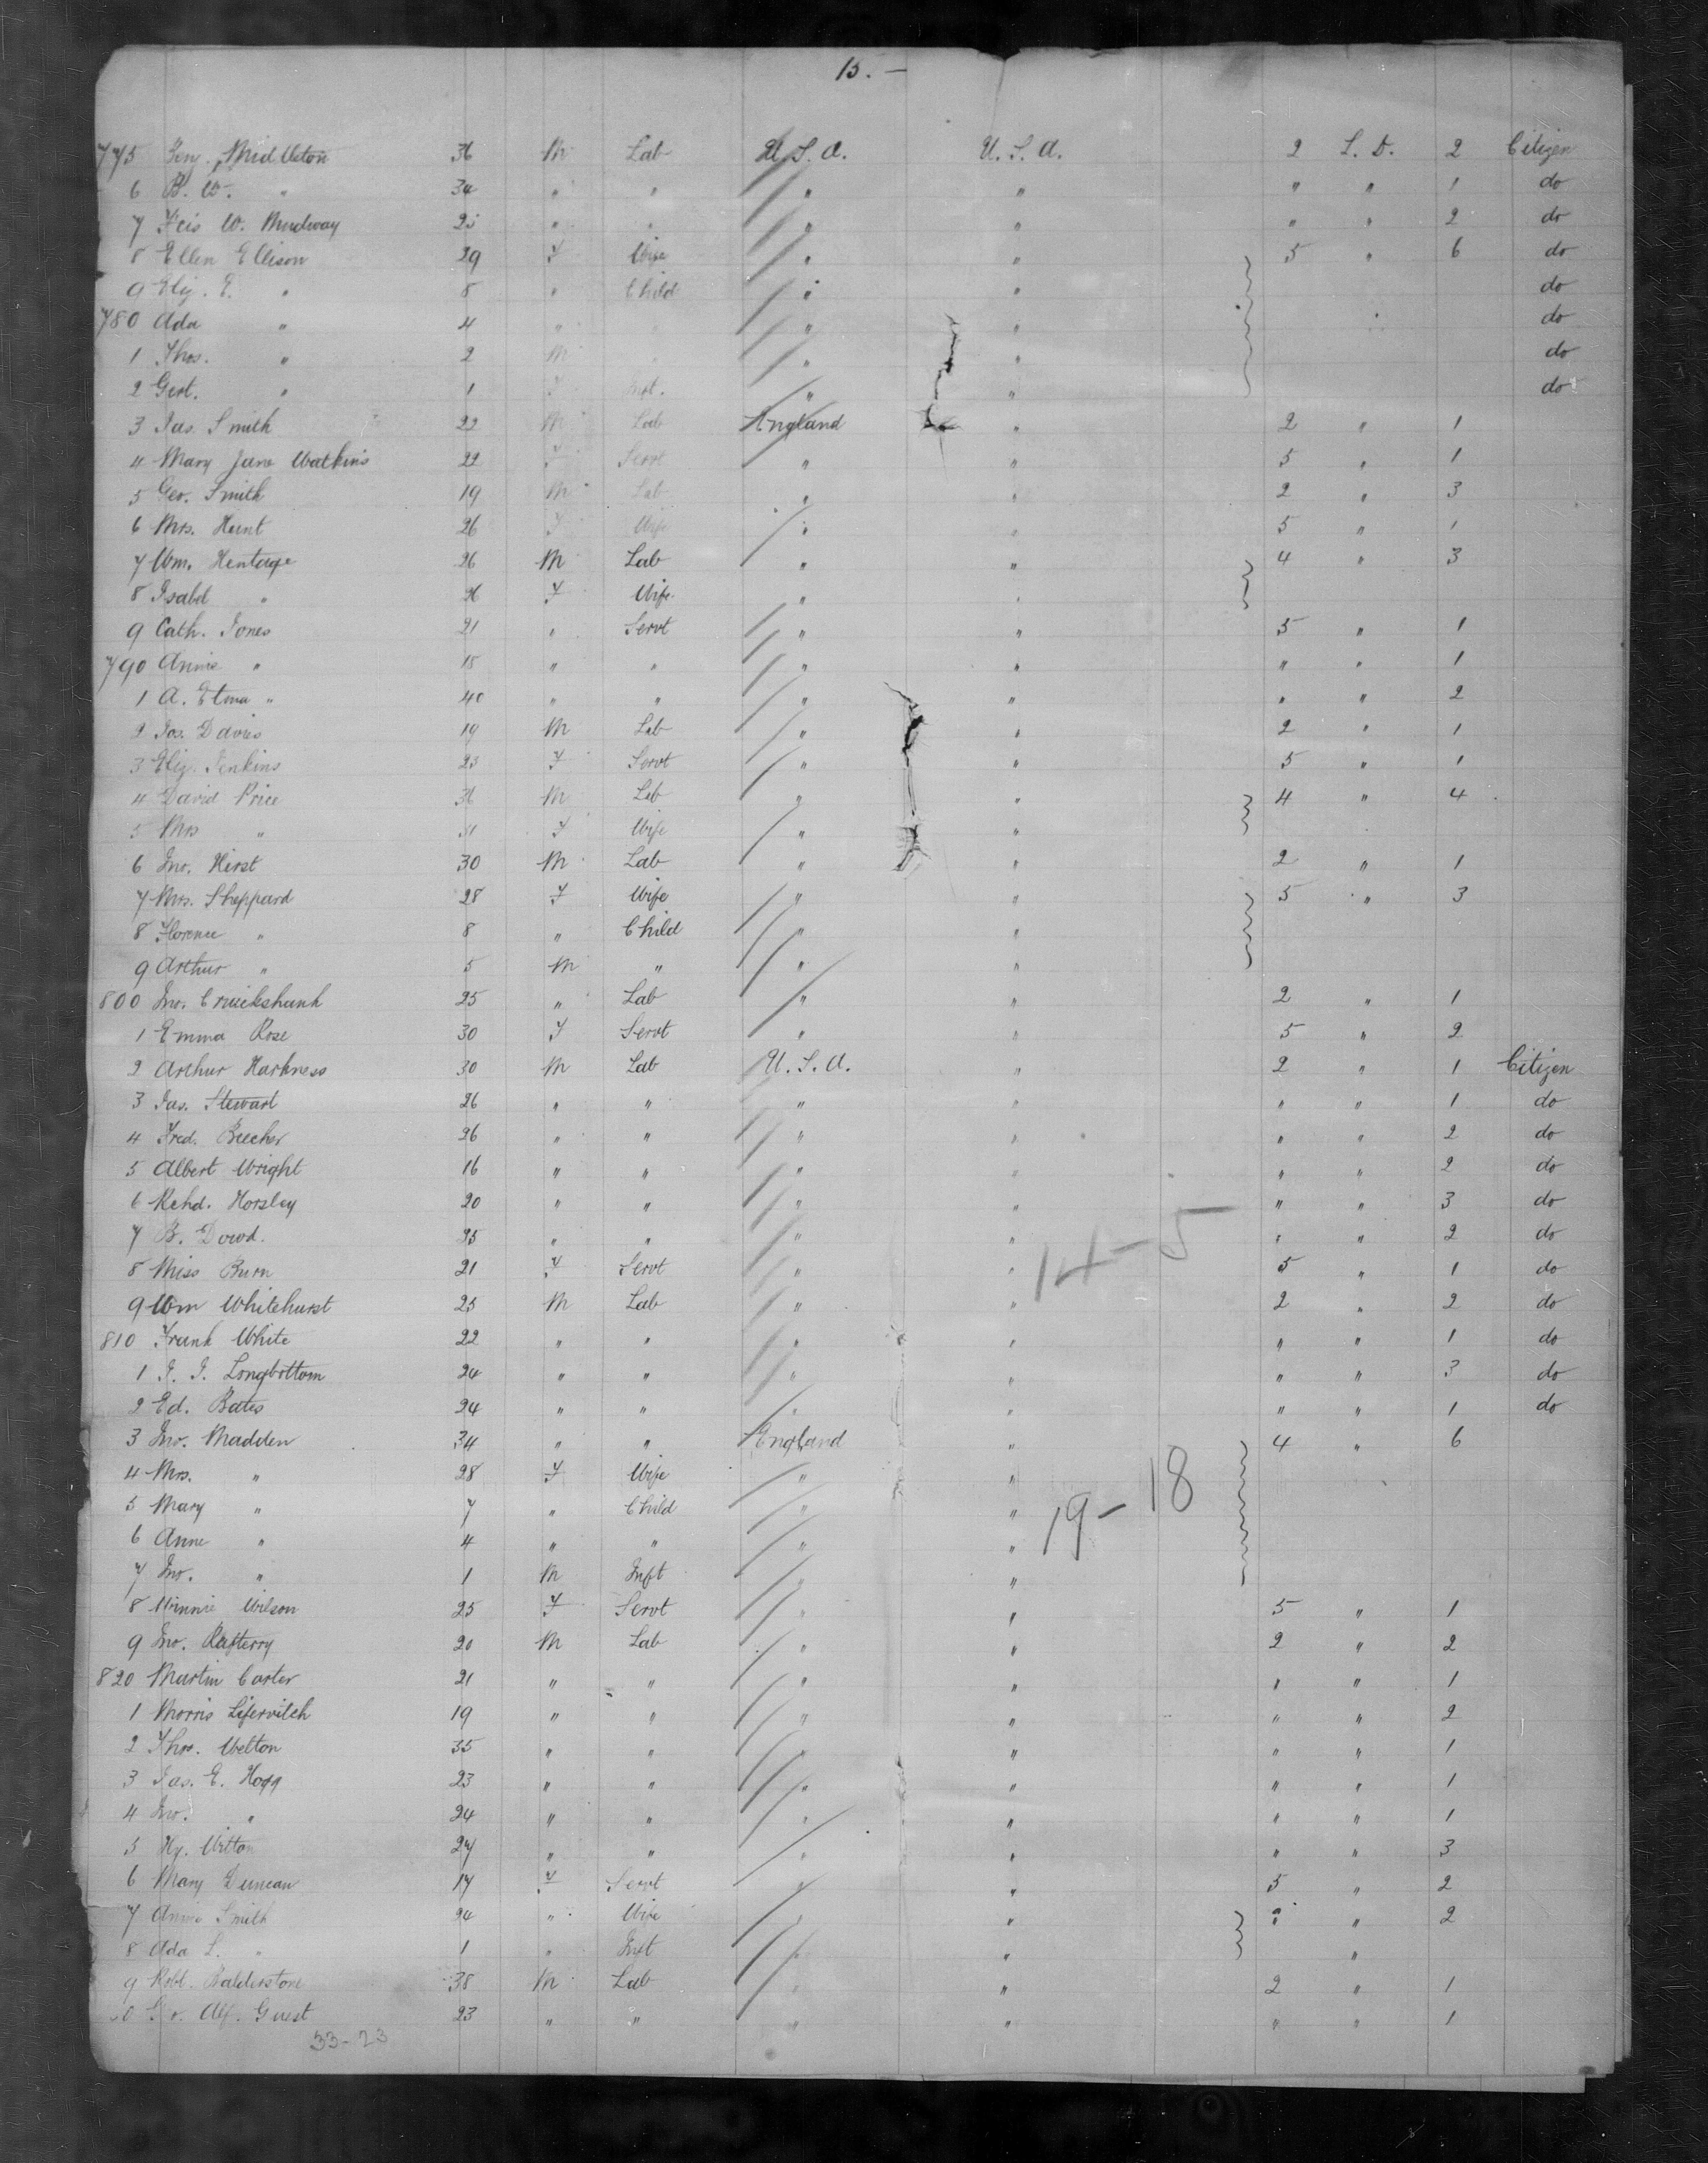 15. —
775 Benj. Middleton 36 M Lab U.S.A. U.S.A. 2 S. D. 2 Citizen
6 B. W. " 34 " " " " " " 1 do
7 Fcis W. Mudway " " " " " " 2 do
8 Ellen Ellison 29 F Wife " " 5 " 6 do
9 Eliz. E. " 8 " Child " " do
780 Ada " 4 " " " " do
1 Thos. " 2 M " " " do
2 Gert. " 1 F Inft. " " do
3 Jas. Smith 22 M Lab England " 2 " 1
4 Mary Jane Watkins 22 F Servt " " 5 " 1
5 Geo. Smith 19 M Lab " " 2 " 3
6 Mrs. Hunt 26 F Wife " " 5 " 1
7 Wm. Hentage 26 M Lab " " 4 " 3
8 Isabel " 26 F Wife " "
9 Cath. Jones 21 " Servt " " 5 " 1
790 Annie " 18 " " " " " " 1
1 A. Etona " 40 " " " " " " 2
2 Jos. Davis 19 M Lab " " 2 " 1
3 Eliz. Jenkins 23 F Servt " " 5 " 1
4 David Price 36 M Lab " " 4 " 4
5 Mrs " 31 F Wife " "
6 Jno. Hirst 30 M Lab " " 2 " 1
7 Mrs. Sheppard 28 F Wife " " 5 " 3
8 Florence " 8 " Child " "
9 Arthur " 5 M " " "
800 Jno. Cruickshank 25 " Lab " " 2 " 1
1 Emma Rose 30 F Servt " " 5 " 2
2 Arthur Harkness 30 M Lab U.S.A. " 2 " 1 Citizen
3 Jas. Stewart 26 " " " " " " 1 do
4 Fred. Beecher 26 " " " " " " 2 do
5 Albert Wright 16 " " " " " " 2 do
6 Rchd. Horsley 20 " " " " " " 3 do
7 B. Dowd. 35 " " " " " " 2 do
14 - 5
8 Miss Burn 21 F Servt " " 5 " 1 do
9 Wm Whitehurst 25 M Lab " " 2 " 2 do
810 Frank White 22 " " " " " " 1 do
1 J. J. Longbottom 24 " " " " " " 3 do
2 Ed. Bates 24 " " " " " " 1 do
3 Jno. Madden 34 " " England " 4 " 6
4 Mrs. " 28 F Wife " "
5 Mary " 7 " Child " "
19 - 18
6 Anne " 4 " " " "
7 Jno. " 1 M Inft " "
8 Minnie Wilson 25 F Servt " " 5 " 1
9 Jno. Rafterry 20 M Lab " " 2 " 2
820 Martin Carter 21 " " " " " " 1
1 Morris Lifervitch 19 " " " " " " 2
2 Thos. Welton 35 " " " " " " 1
3 Jas. E. Hogg 23 " " " " " " 1
4 Jno. " 24 " " " " " " 1
5 Hy. Witton 27 " " " " " " 3
6 Mary Duncan 17 F Servt " " 5 " 2
7 Annie Smith 24 " Wife " " " " 2
8 Ada L. " 1 " Inft " " "
9 Robt. Balderstone 38 M Lab " " 2 " 1
0 Geo. Alf. Guest 23 " " " " " " 1
33-23